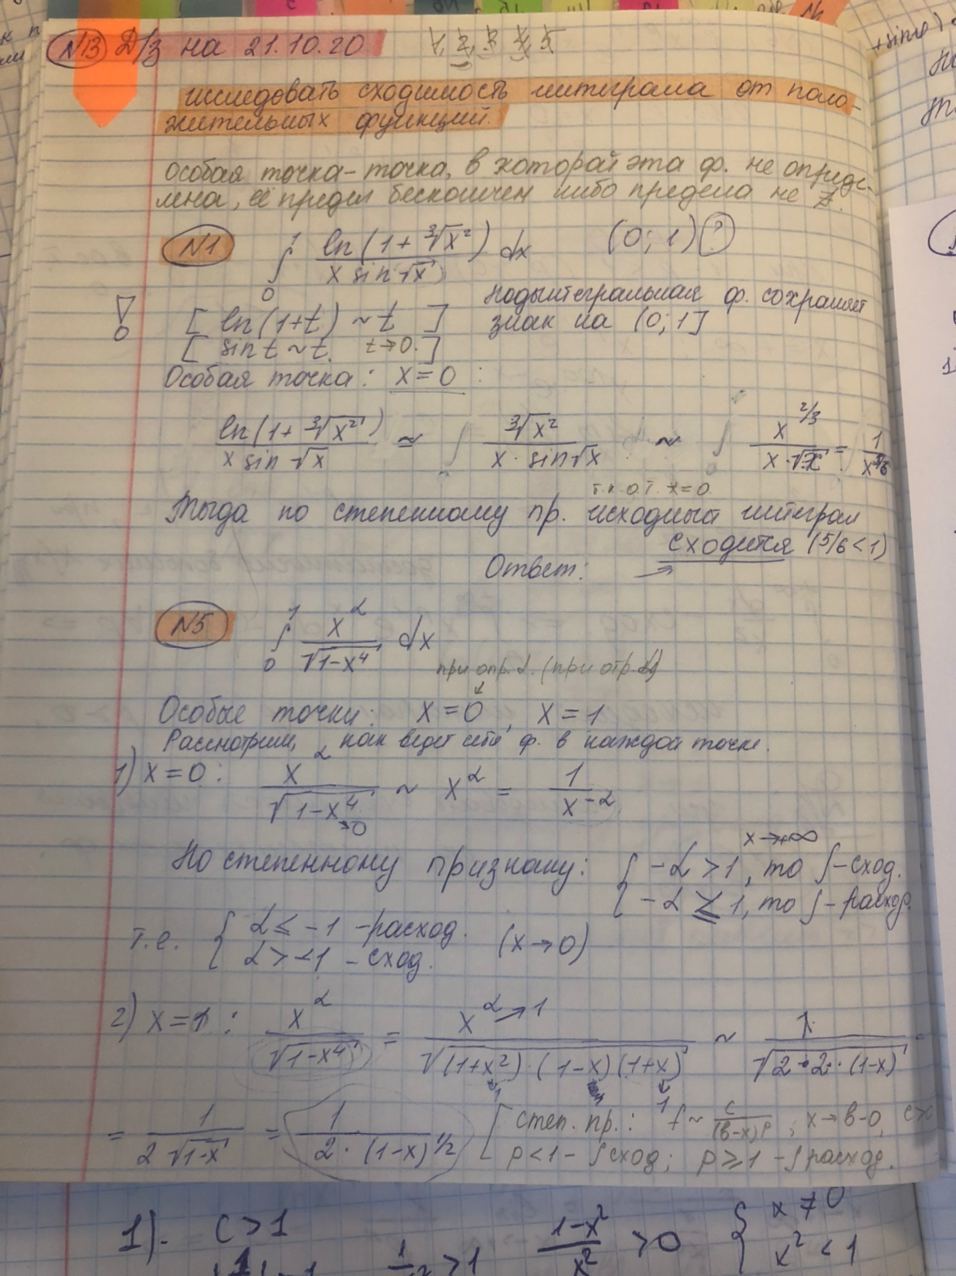 N13 Д/з на 21.10.20
исследовать сходимость интеграла от поло-
жительных функций.
Особая точка - точка, в которой эта ф. не опреде-
лена, её предел бесконечен либо предела не ∃.
N1 ∫₀¹ ln(1+∛x²) / (x sin√x) dx (0; 1) ?
Подынтегральная ф. сохраняет
[ ln(1+t) ~ t ] знак на (0; 1]
[ sin t ~ t, t→0. ]
Особая точка: x=0 :
ln(1+∛x²) / (x sin√x) ≈ ∛x² / (x · sin√x) ~ x^(2/3) / (x·√x) = 1/x^(5/6)
т.к. о.т. x=0
Тогда по степенному пр. исходный интеграл
сходится (5/6 < 1)
Ответ:
N5 ∫₀¹ x^α / √(1-x⁴) dx
при опр. α. (при отр. α)
Особые точки: x=0, x=1
Рассмотрим, как ведет себя ф. в каждой точке.
1) x=0: x^α / √(1-x⁴) ~ x^α = 1/x^(-α)
→0
x→+∞
По степенному признаку: { -α > 1, то ∫-сход.
-α ≤ 1, то ∫-расход.
т.е. { α ≤ -1 - расход. (x→0)
α > -1 - сход.
2) x=1: x^α / √(1-x⁴) = x^α→1 / √((1+x²)·(1-x)(1+x)) ~ 1 / √(2·2·(1-x)) =
= 1 / (2√(1-x)) = 1 / (2·(1-x)^(1/2)) [ степ. пр.: f ~ c/(b-x)^p, x→b-0, c>
p<1 - ∫ сход; p≥1 - ∫ расход.
1). c>1 (1-x²)/x² > 0 { x≠0
>1 x² < 1